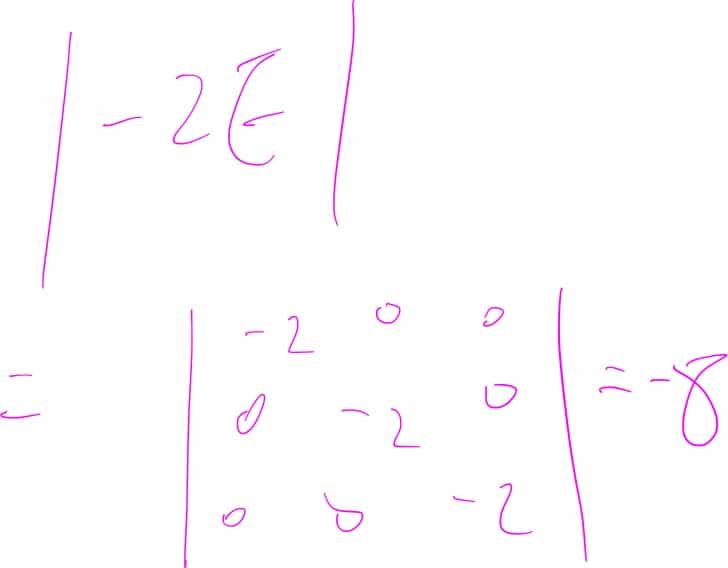 | -2E |
= | -2 0 0 | = -8
| 0 -2 0 |
| 0 0 -2 |